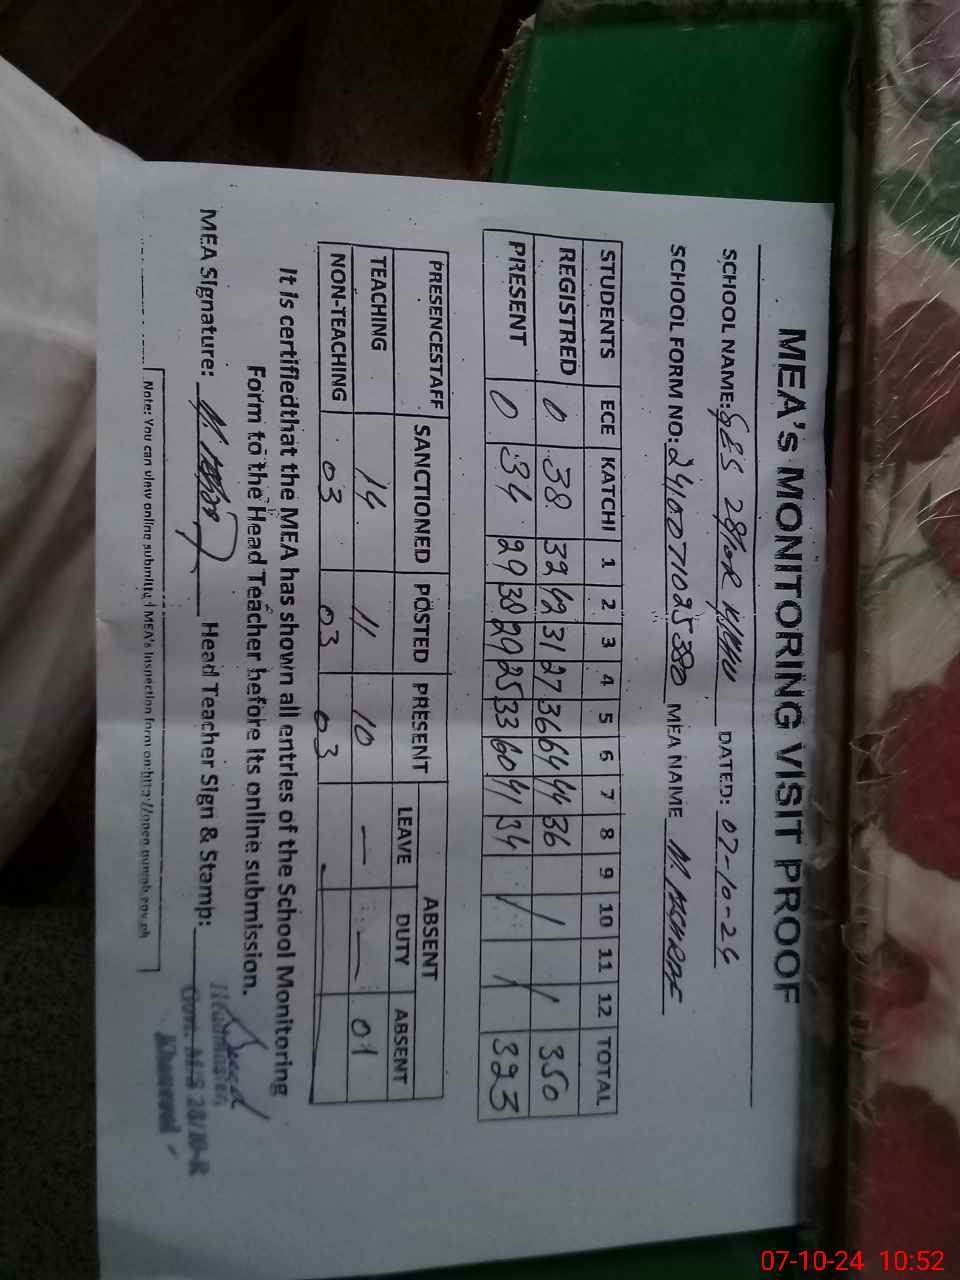 MEA's MONITORING VISIT PROOF
SCHOOL NAME: GES 28/10R KWU DATED: 07-10-24
SCHOOL FORM NO: 24100771025380 MEA NAME
STUDENTS ECE KATCHI 1 2 3 4 5 6 7 8 9 10 11 12 TOTAL
REGISTRED 0 38 32 42 31 27 36 64 44 36 / / 350
PRESENT 0 34 29 38 29 25 33 60 41 34 / / 323
PRESENCESTAFF SANCTIONED POSTED PRESENT ABSENT
LEAVE DUTY ABSENT
TEACHING 14 11 10 — — 01
NON-TEACHING 03 03 03 -
It is certifiedthat the MEA has shown all entries of the School Monitoring
Form to the Head Teacher before its online submission.
MEA Signature: Head Teacher Sign & Stamp:
Headmaster
Govt. M/S 28/10-R
Khanewal
Note: You can view online submitted MEA's Inspection form on:http://open.punjab.gov.pk
07-10-24 10:52